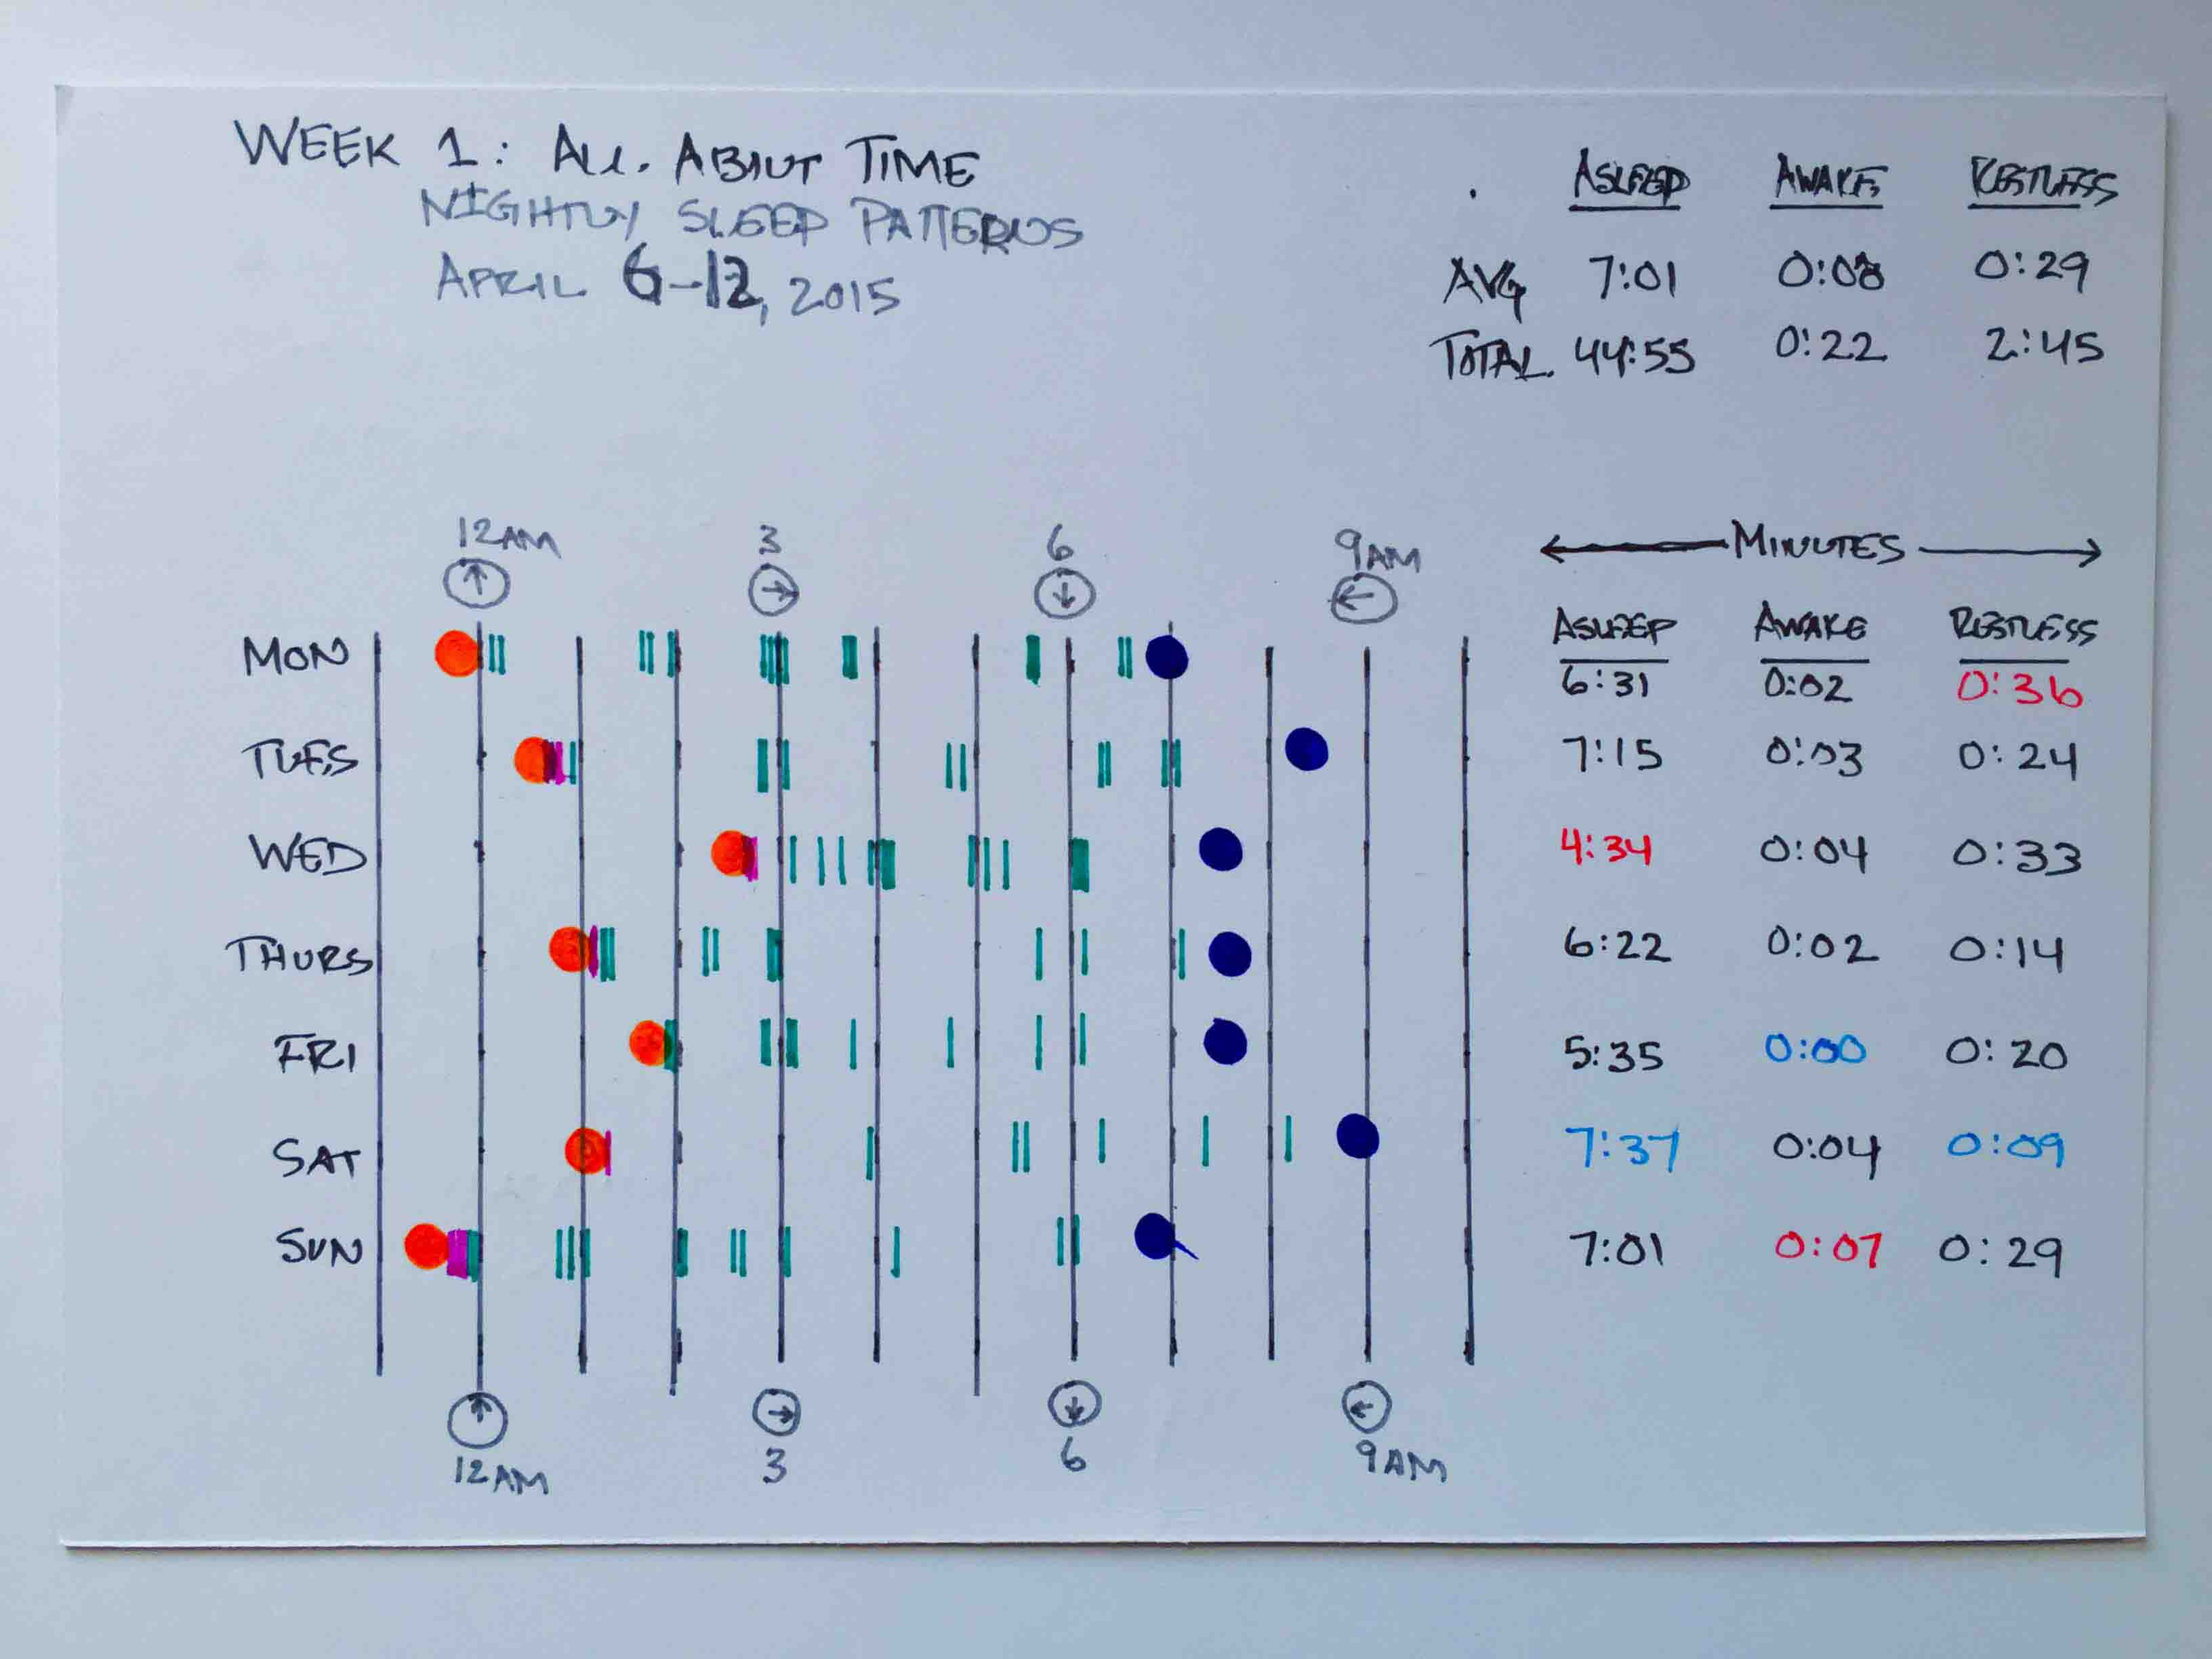 WEEK 1: ALL ABOUT TIME
NIGHTLY SLEEP PATTERNS
APRIL 6-12, 2015
ASLEEP AWAKE RESTLESS
AVG 7:01 0:08 0:29
TOTAL. 44:55 0:22 2:45
12AM 3 6 9AM
← MINUTES →
ASLEEP AWAKE RESTLESS
MON 6:31 0:02 0:36
TUES 7:15 0:03 0:24
WED 4:34 0:04 0:33
THURS 6:22 0:02 0:14
FRI 5:35 0:00 0:20
SAT 7:37 0:04 0:09
SUN 7:01 0:07 0:29
12AM 3 6 9AM